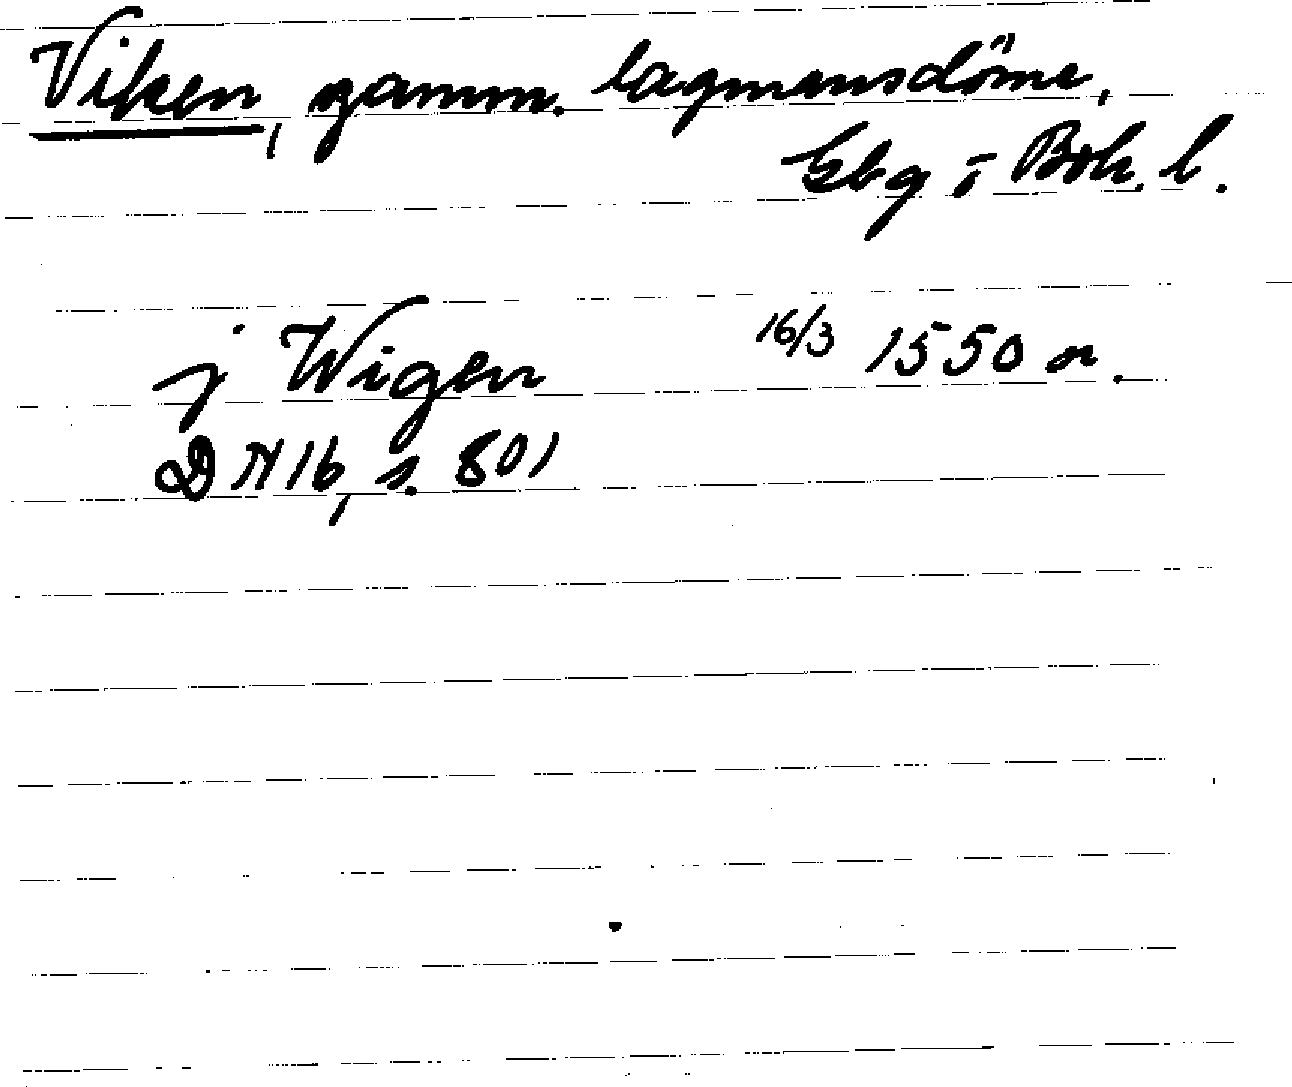 Viken, gamm. lagmansdöme,
Gbg o Boh. l.
j Wigen 16/3 1550 or.
DN 16, s. 801